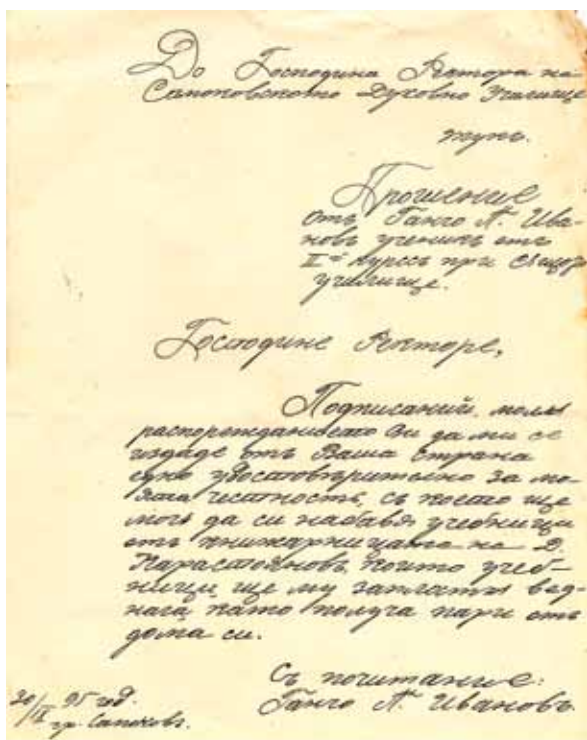 До Господина Ректора на
Самоковското Духовно Училище
тукъ.
Прошение
отъ Ганго П. Ива-
новъ ученикъ отъ
II й курсъ при същото
училище.
Господине Ректоре,
Подписаний, моля
распорежданьето Ви да ми се
издаде отъ Ваша страна
едно удостовѣрително за мо-
ята честность, съ което ще
мога да си набавя учебници
отъ книжарницата на Д.
Карастояновъ, които учеб-
ници ще му заплатя вед-
нага като получа пари отъ
дома си.
Съ почитание:
Ганго П. Ивановъ.
30/IX 95 год.
гр. Самоковъ.